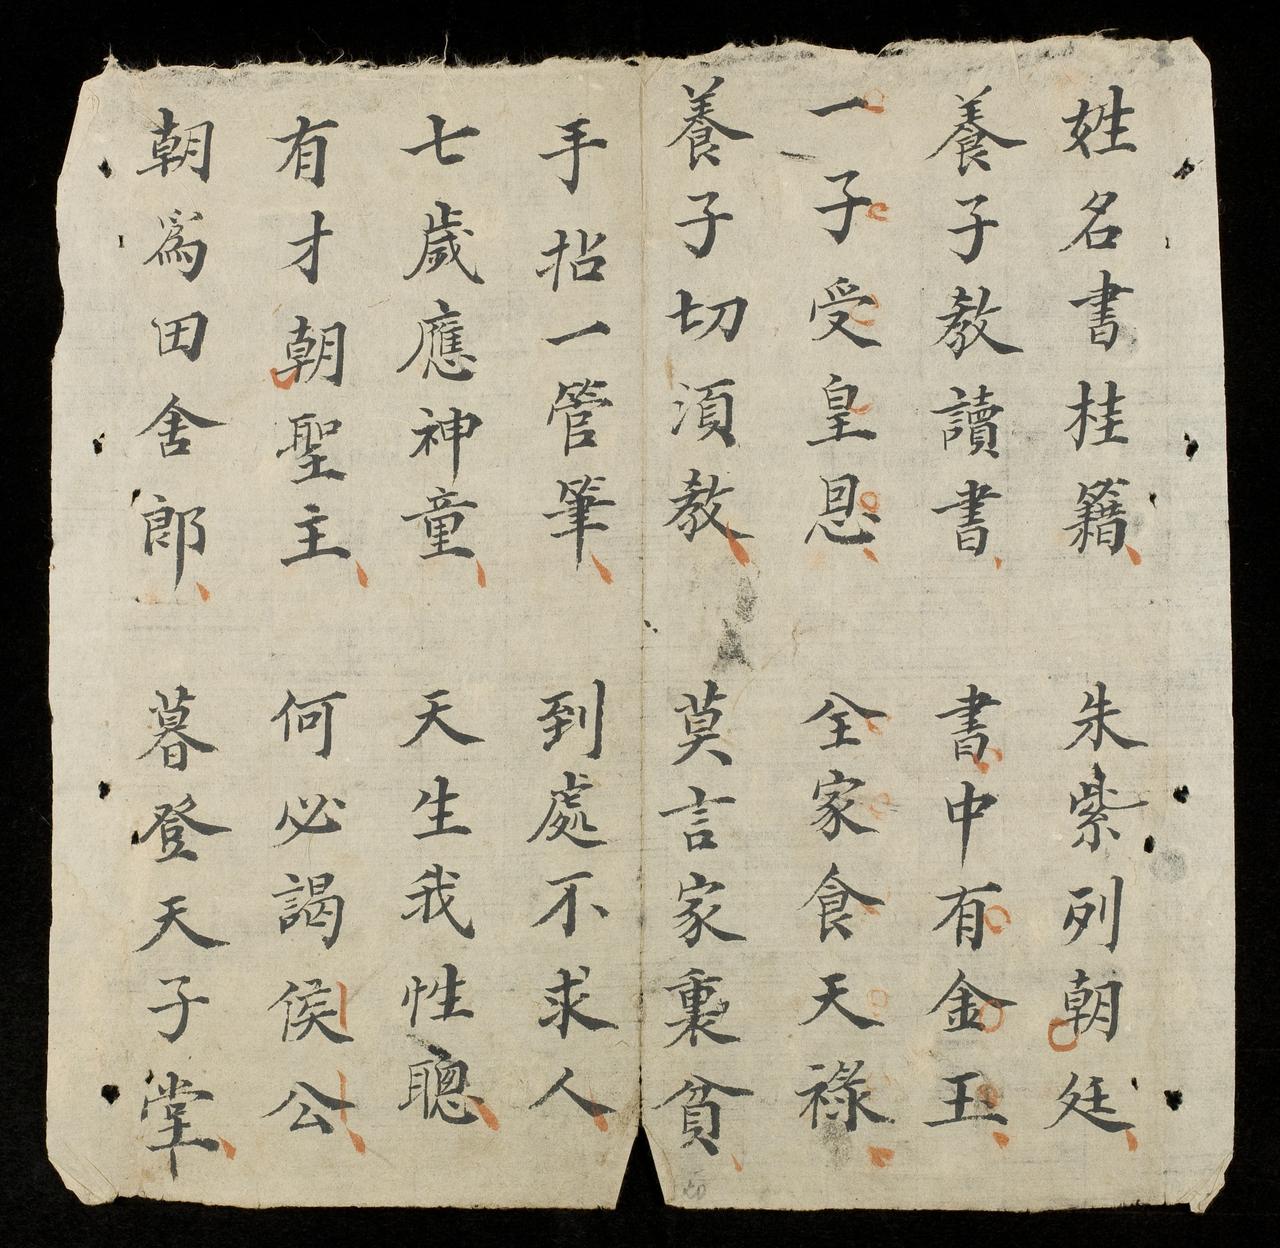 姓名書桂籍 朱紫列朝廷
養子教讀書 書中有金玉
一子受皇恩 全家食天祿
養子切須教 莫言家裏貧
手拈一管筆 到處不求人
七歲應神童 天生我性聰
有才朝聖主 何必謁侯公
朝爲田舍郎 暮登天子堂